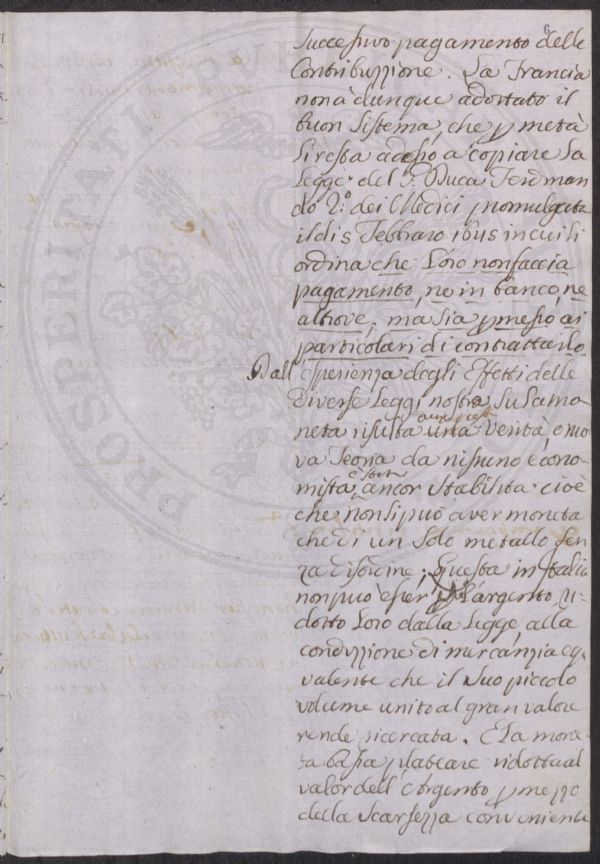 6
successivo pagamento delle
Contribuzzione. La Francia
non à dunque adottato il
buon sistema, che p metà
Li resta adesso a copiare La
Legge del S. Duca Ferdinan
do 2.º dei Medici promulgata
il dì 5 Febbraro in cui si
ordina che Loro non faccia
pagamento, ne in banco, ne
altrove, ma sia pmesso ai
particolari di contrattarlo.
Dall' esperienza degli Effetti delle
diverse Leggi nostre sulla mo
neta risulta una verità, o nuo
va Teoria da nissuno écono
mista è stata ancor stabilita cioè
che non si può aver moneta
che di un solo metallo sen
za disordine; Questa in Italia
non può esser L'argento, ri
dotto Loro dalla Legge alla
condizzione di mercanzia equi
valente che il suo piccolo
volume unito al gran valore
rende ricercata. E La mone
ta bassa p bilanciare ridotta al
valor dell'Argento p mezzo
della scarsezza conveniente
PROSPERITATI PVBLIC